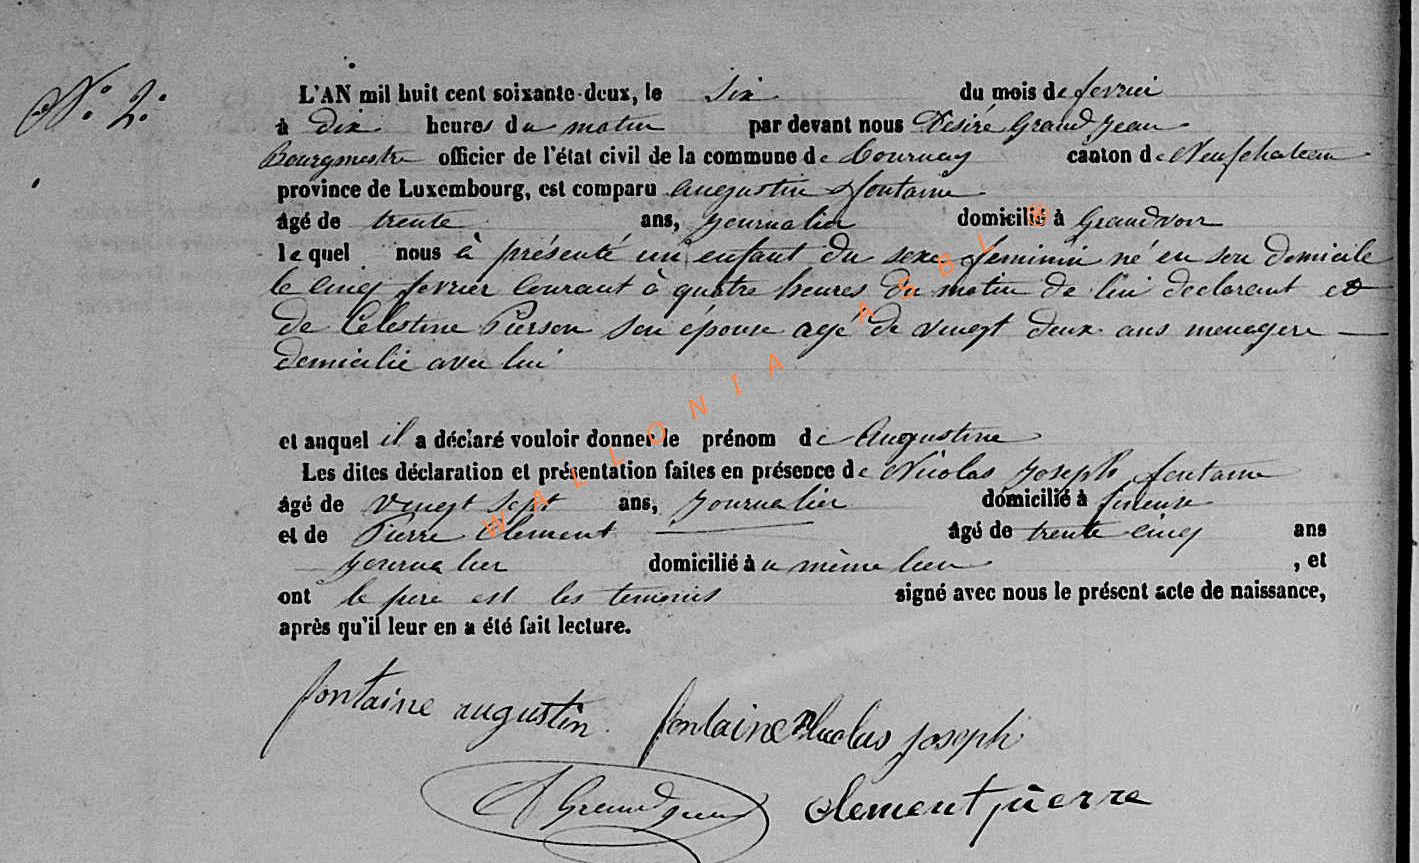 N.º 2.
L'AN mil huit cent soixante-deux, le six du mois de fevrier
à dix heures du matin par devant nous Désiré Grand Jean
Bourgmestre officier de l'état civil de la commune de Tournay canton de Neufchateau
province de Luxembourg, est comparu Augustin fontaine
âgé de trente ans, journalier domicilié à Grandvoir
le quel nous à présenté un enfant du sexe feminin né en son domicile
le cinq fevrier courant à quatre heures du matin de lui declarant et
de Celestine Pierson son épouse agé de vingt deux ans menagere
domicilié avec lui
et auquel il a déclaré vouloir donner le prénom de Augustine
Les dites déclaration et présentation faites en présence de Nicolas Joseph fontaine
âgé de vingt sept ans, journalier domicilié à
et de Pierre Clement âgé de trente cinq ans
journalier domicilié au même lieu , et
ont le pere est les temoins signé avec nous le présent acte de naissance,
après qu'il leur en a été fait lecture.
fontaine augustin. fontaine Nicolas joseph
D Grandjean clement pierre
WALLONIA ASBL ©